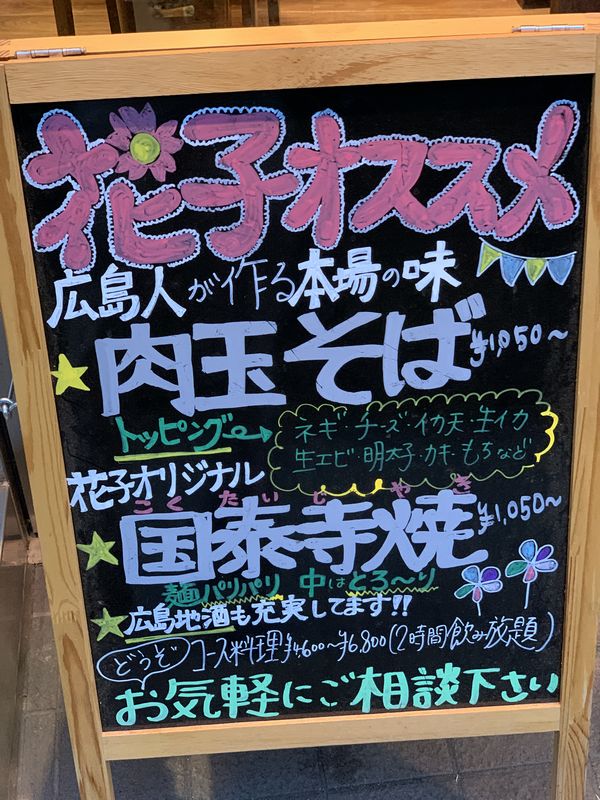 花子オススメ
広島人が作る本場の味
肉玉そば ¥1,050〜
トッピング
ネギ・チーズ・イカ天・生イカ
生エビ・明太子・カキ・もちなど
花子オリジナル
こくたいじやき
国泰寺焼 ¥1,050〜
麺パリパリ 中はとろ〜り
広島地酒も充実してます!!
どうぞ コース料理¥4,600〜¥6,800(2時間飲み放題)
お気軽にご相談下さい